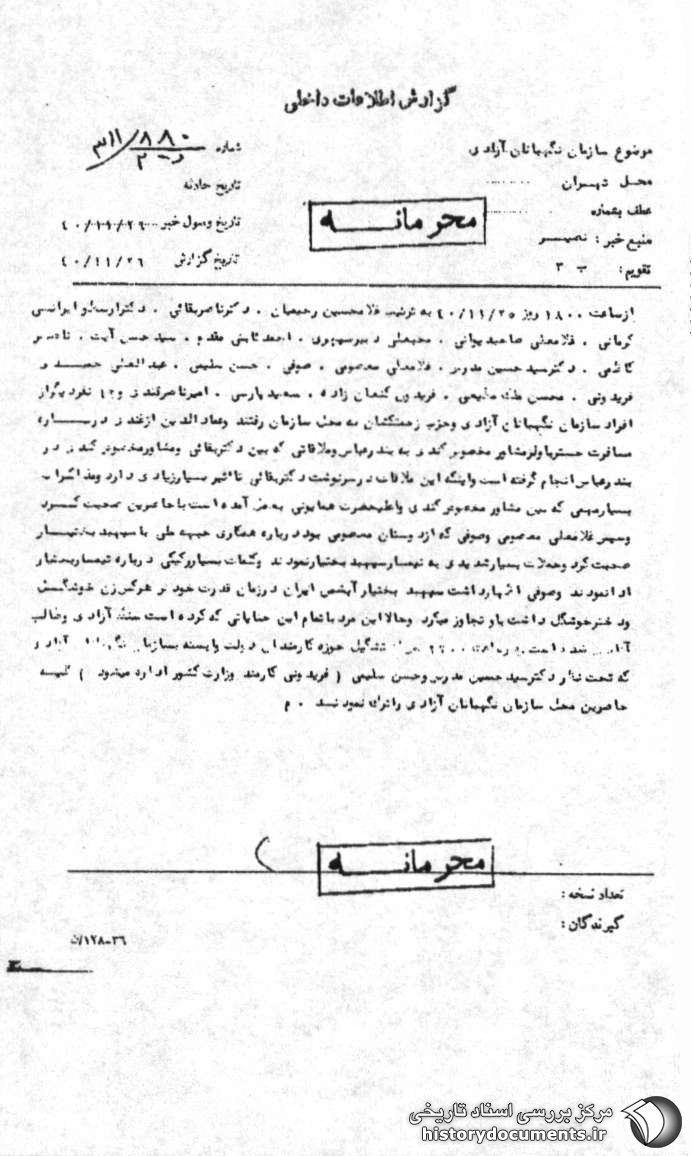 گزارش اطلاعات داخلی
موضوع سازمان نگهبانان آزادی
شماره ۸۸۰ / ۳۱۱
محل تهران
تاریخ حادثه
عطف بشماره
محرمانــه
تاریخ وصول خبر ۴۰/۱۱/۲۶
منبع خبر : نصیــر
تاریخ گزارش ۴۰/۱۱/۲۶
تقویم : ب ۳
از ساعت ۱۸۰۰ روز ۴۰/۱۱/۲۵ به ترتیب غلامحسین رحیمیان ، دکتر ناصر بقائی ، دکتر ارسطو ایرانسی
کرمانی ، غلامعلی صاحبدیوانی ، دبیرسپهری ، احمد ثابتی مقدم ، سید حسن آیت ، ناصر
کاظمی ، دکتر سید حسین مدرس ، غلامعلی معصومی ، صوفی ، حسن سلیمی ، عبدالعلی
فریدونی ، محسن ملک مطیعی ، فریدون کنعان زاده ، سعید پارسی ، امیرناصر قندی و ۱۲ نفر دیگر از
افراد سازمان نگهبانان آزادی وحزب زحمتکشان به محل سازمان رفتند وعمادالدین ازغندی دربــاره
مسافرت چستر باولز مشاور مخصوص کندی به بندرعباس وملاقاتی که بین دکتر بقائی ومشاور مخصوص کندی در
بندرعباس انجام گرفته است واینکه این ملاقات درسرنوشت دکتر بقائی تاثیر بسیارزیادی دارد ومذاکرات
بسیارمهمی که بین مشاور مخصوص کندی واعلیحضرت همایونی بعمل آمده است باحاضرین صحبت کــرد
وسپس غلامعلی معصومی وصوفی که از دوستان معصومی بود درباره همکاری جبهه ملی با سپهبد بختیــار
صحبت کرد وحملات بسیارشدیدی به تیمسار سپهبد بختیار نمودند وکلمات بسیار رکیکی درباره تیمسار بختیار
ادا نمودند وصوفی اظهار داشت سپهبد بختیار آبشم ایران درزمان قدرت خود هرکس زن خوشگــل
ودختر خوشگل داشت باو تجاوز میکرد وحالا این مرد باتمام این جنایاتی که کرده است آزادی وطالب
آزادی شده است ودر ساعت تشکیل حوزه کارمندان دولت وابسته بسازمان نگهبانان آزادی
که تحت نظر دکتر سید حسین مدرس وحسن سلیمی ( فریدونی کارمند وزارت کشور اداره میشود ) کلیــه
حاضرین محل سازمان نگهبانان آزادی را ترک نمودنــد . م
محرمانــه
تعداد نسخه :
گیرندگان :
۳۶-۱۲۸/ث
مرکز بررسی اسناد تاریخی
historydocuments.ir